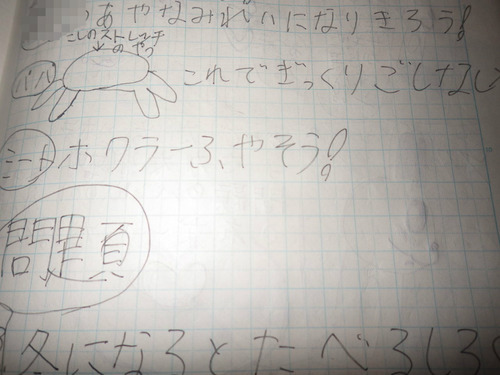 あやなみれいになりきろう!
こしのストレッチ
のやつ
バル これでぎっくりごしなし
ミート ホワラーふやそう!
問題
冬になるとたべるしる